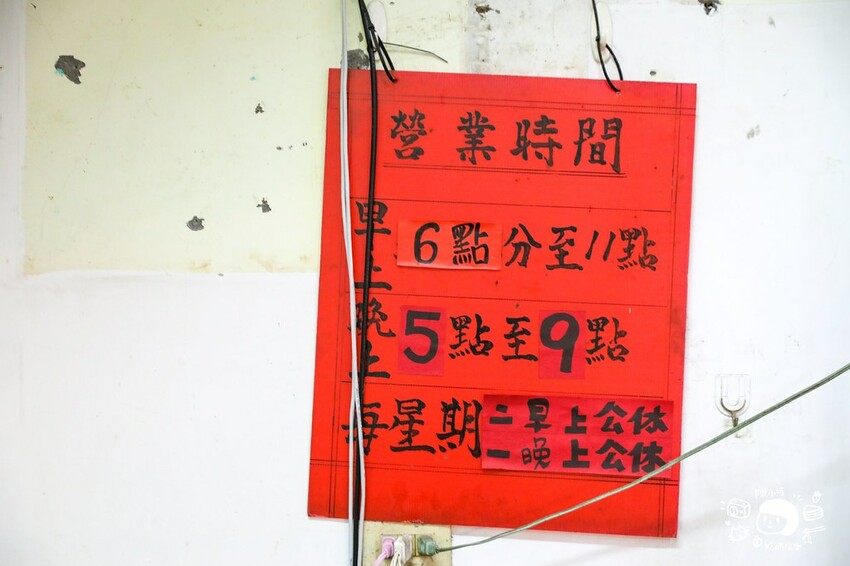 營業時間
早上6點分至11點
晚上5點至9點
每星期二早上公休
一晚上公休